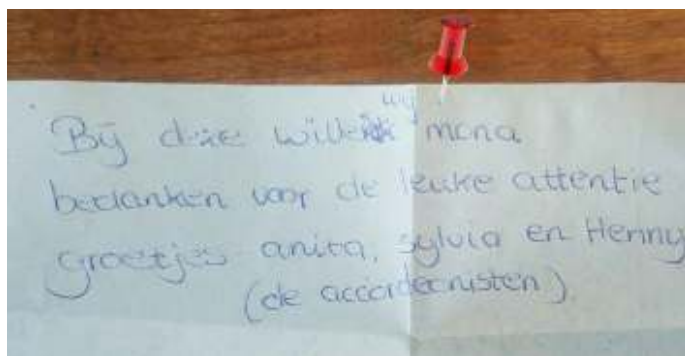 Bij deze willen wij mona
bedanken voor de leuke attentie
groetjes anita, sylvia en Henny
(de accordeonisten)